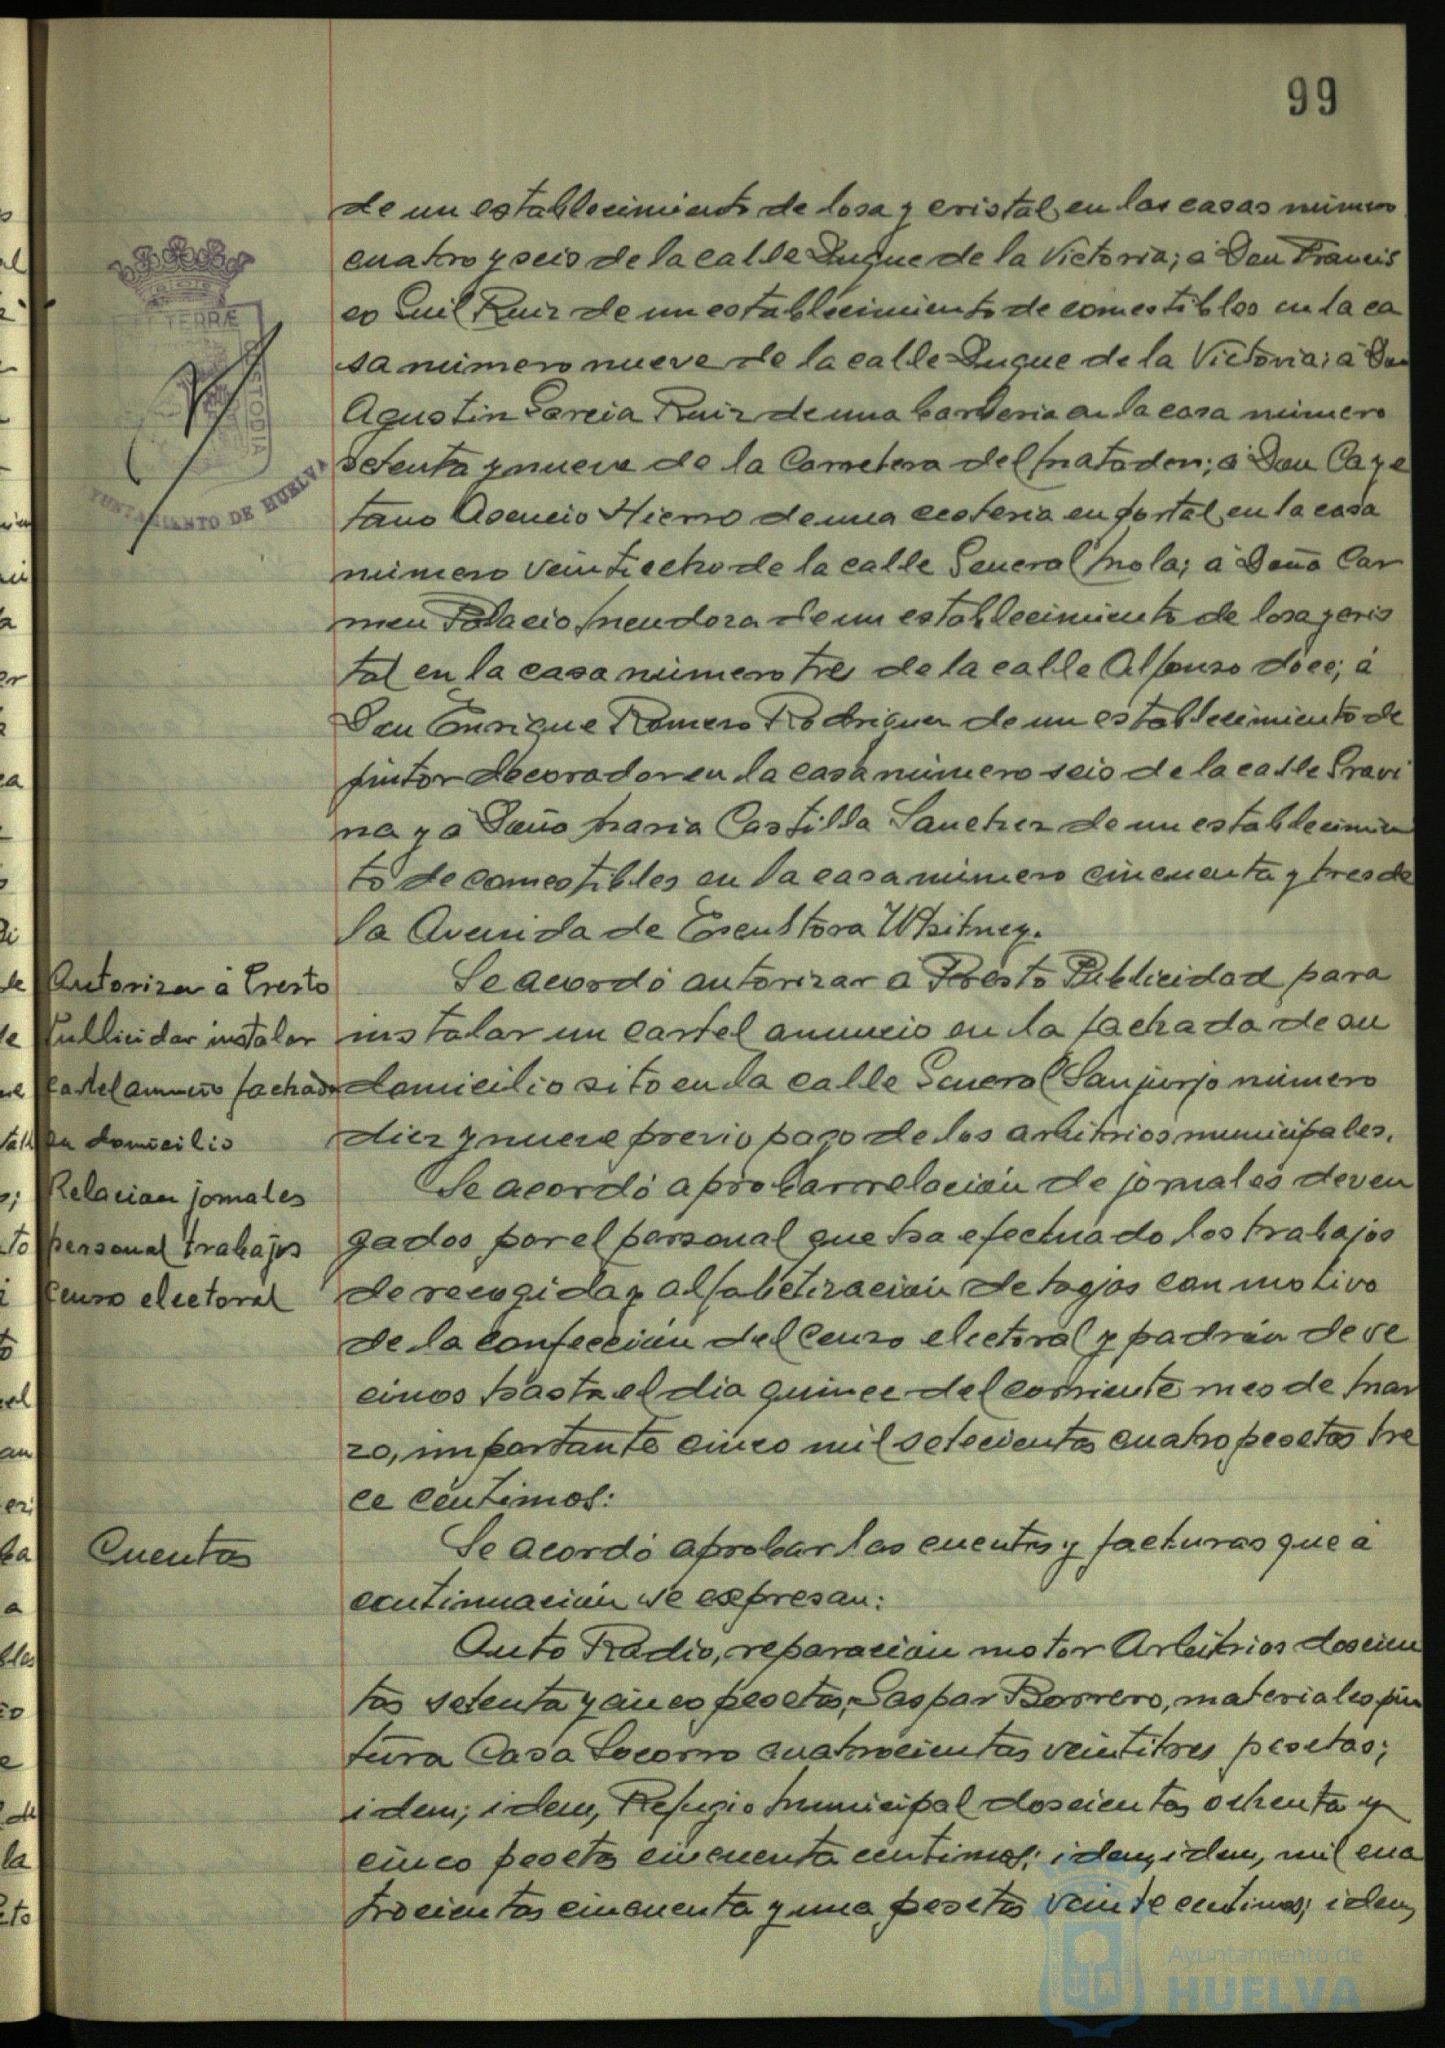 99
de un establecimiento de losa y cristal en las casas número
cuatro y seis de la calle Duque de la Victoria; á Don Francis
co Guil Ruiz de un establecimiento de comestibles en la ca
sa número nueve de la calle Duque de la Victoria; á Don
Agustin Garcia Ruiz de una barberia en la casa número
setenta y nueve de la Carretera del Matadero; á Don Caye
tano Asencio Hierro de una cesteria en portal en la casa
número veintiocho de la calle General Mola; á Doña Car
men Palacio Mendoza de un establecimiento de losa y cris
tal en la casa número tres de la calle Alfonso doce; á
Don Enrique Romero Rodriguez de un establecimiento de
pintor decorador en la casa número seis de la calle Gravi
na y á Doña Maria Castilla Sanchez de un establecimien
to de comestibles en la casa número cincuenta y tres de
la Avenida de Escultora Whitney.
Autorizar á Presto
Publicidad instalar
cartel anuncio fachada
su domicilio
Se acordó autorizar á Presto Publicidad para
instalar un cartel anuncio en la fachada de su
domicilio sito en la calle General Sanjurjo número
diez y nueve previo pago de los arbitrios municipales.
Relacion jornales
personal trabajos
Censo electoral
Se acordó aprobar relación de jornales deven
gados por el personal que ha efectuado los trabajos
de recogida y alfabetización de hojas con motivo
de la confección del Censo electoral y padrón de ve
cinos hasta el dia quince del corriente mes de Mar
zo, importante cinco mil setecientas cuatro pesetas tre
ce céntimos:
Cuentas
Se acordó aprobar las cuentas y facturas que á
continuación se expresan:
Auto Radio, reparación motor Arbitrios doscien
tas setenta y cinco pesetas; Gaspar Borrero, materiales pin
tura Casa Socorro cuatrocientas veintitres pesetas;
idem; idem, Refugio Municipal doscientas ochenta y
cinco pesetas cincuenta centimos; idem, idem, mil cua
trocientas cincuenta y una pesetas veinte centimos; idem,
TERRÆ
CUSTODIA
AYUNTAMIENTO DE HUELVA
Ayuntamiento de
HUELVA